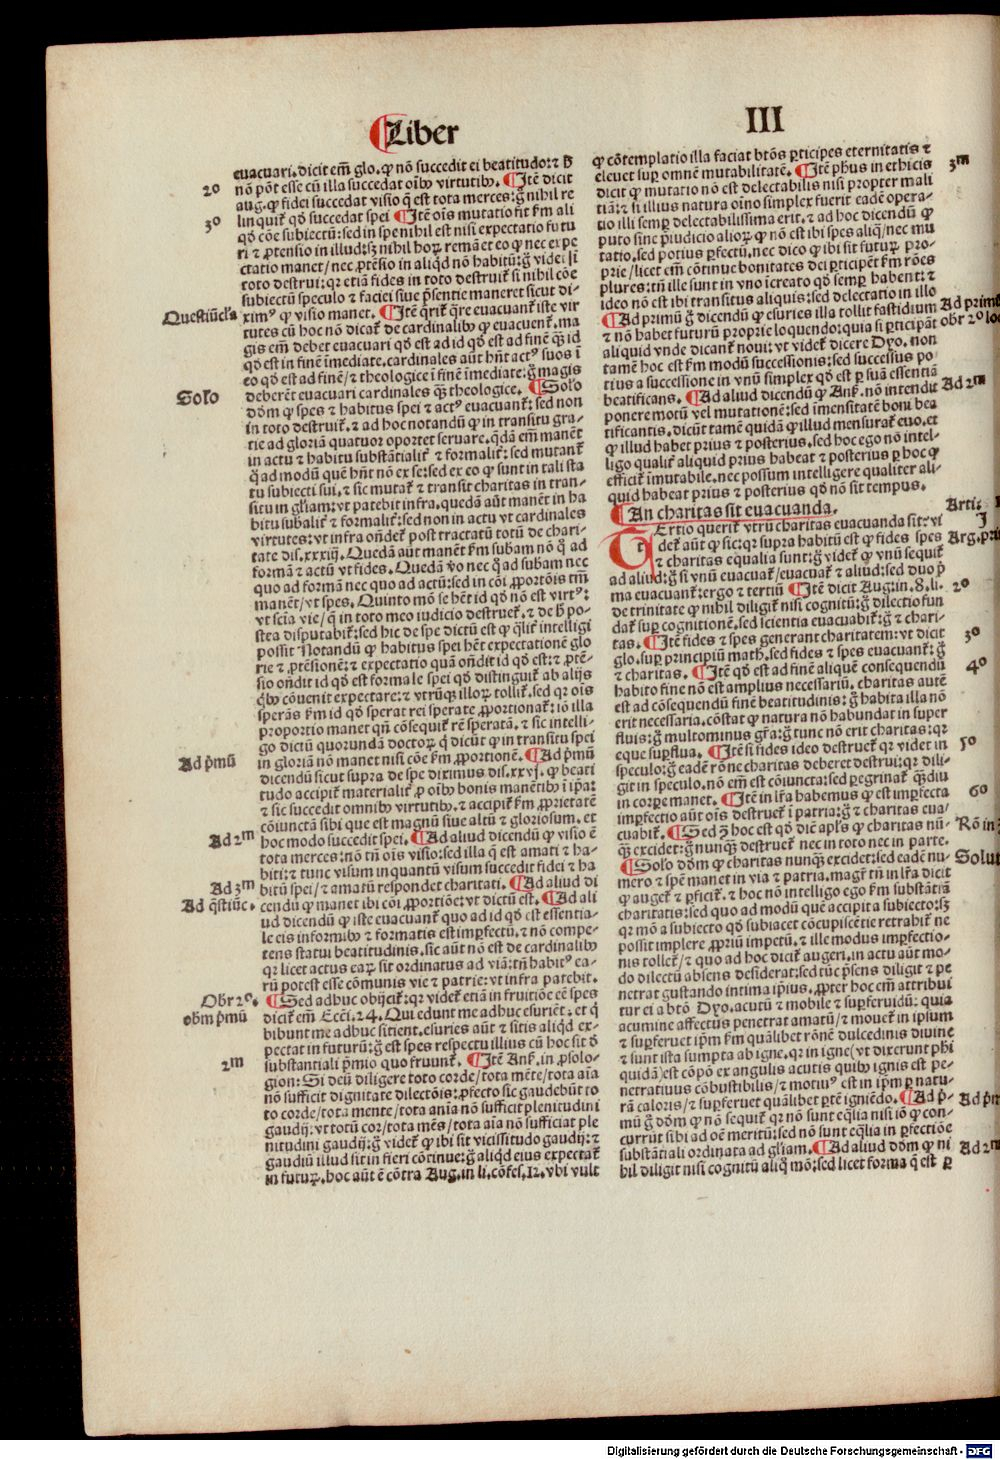 Liber
III
euacuari. dicit em̄ glo. ꝙ nō succedit ei beatitudo: ⁊ ħ
nō pōt esse cū illa succedat oībꝰ virtutibꝰ. ¶ Itē dicit
aug. ꝙ fidei succedat visio q̄ est tota merces: g̃ nihil re
linquit̄ qđ succedat spei ¶ Itē oīs mutatio fit s̄m ali
qđ cōe subiectū: sed in spe nihil est nisi expectatio futu
ri ⁊ ꝓtensio in illud: sꝫ nihil hoꝝ remāet eo ꝙ nec expe
ctatio manet / nec ꝓtēsio in aliqđ nō habitū: g̃ videt̄
toto destrui: qꝛ etiā fides in toto destruit̄ si nihil cōe
subiectū speculo ⁊ faciei siue p̄sentie maneret sicut di-
ximꝰ ꝙ visio manet. ¶ Itē q̄rit̄ q̄re euacuant̄ iste vir
tutes cū hoc nō dicat̄ de cardinalibꝰ ꝙ euacuent̄. ma
gis em̄ debet euacuari qđ est ad id qđ est ad finē q̄ id
qđ est in finē īmediate. cardinales aūt hn̄t actꝰ suos ī
eo qđ est ad finē / ⁊ theologice ī finē īmediate: g̃ magis
deberēt euacuari cardinales q̄ꝫ theologice. ¶ Solo
dōm ꝙ spes ⁊ habitus spei ⁊ actꝰ euacuant̄: sed non
in toto destruit̄. ⁊ ad hoc notandū ꝙ in transitu gra-
tie ad gloriā quatuor oportet seruare. q̄dā em̄ manēt
in actu ⁊ habitu substātialit̄ ⁊ formalit̄: sed mutant̄
q̄ ad modū quē hn̄t nō ex se: sed ex eo ꝙ sunt in tali sta
tu subiecti sui. ⁊ sic mutat̄ ⁊ transit charitas in tran-
situ in gl̄iam: vt patebit infra. quedā aūt manēt in ha
bitu subalit̄ ⁊ formalit̄: sed non in actu vt cardinales
virtutes: vt infra ondēt̄ post tractatū totū de chari-
tate dis. xxxiij. Quedā aūt manēt s̄m subam nō q̄ ad
formā ⁊ actū vt fides. Quedā ꝟo nec q̄ ad subam nec
quo ad formā nec quo ad actū: sed in cōi ꝓportōis tm̄
manēt / vt spes. Quinto mō se hēt id qđ nō est virtꝰ:
vt scīa vie / q̄ in toto meo iudicio destruet̄. ⁊ de ħ po-
stea disputabit̄: sed hic de spe dictū est ꝙ q̄lit̄ intelligi
possit Notandū ꝙ habitus spei hēt expectationē glo
rie ⁊ ꝓtensionē: ⁊ expectatio quā on̄dit id qđ est: ⁊ ꝓtē-
sio on̄dit id qđ est formale spei qđ distinguit̄ ab alijs
q̄bꝰ cōuenit expectare: ⁊ vtrūqꝫ illoꝝ tollit̄. sed qꝛ ois
sperās s̄m id qđ sperat rei sperate ꝓportionat̄: iō illa
proportio manet qn̄ cōsequit̄ rē speratā. ⁊ sic intelli-
go dictū quorundā doctoꝝ q̄ dicūt ꝙ in transitu spei
in gloriā nō manet nisi cōe s̄m ꝓportionē. ¶ Ad p̄mū
dicendū sicut supra de spe diximus dis. xxvj. ꝙ beati
tudo accipit̄ materialit̄ ꝓ oībꝰ bonis manētibꝰ ī ip̄a:
⁊ sic succedit omnibꝰ virtutibꝰ. ⁊ accipit̄ s̄m ꝓprietatē
cōiunctā sibi que est magnū siue altū ⁊ gloriosum. et
hoc modo succedit spei. ¶ Ad aliud dicendū ꝙ visio ē
tota merces: nō tn̄ oīs visio: sed illa q̄ est amati ⁊ ha-
biti: ⁊ tunc visum inquantū visum succedit fidei ⁊ ha
bitū spei / ⁊ amatū respondet charitati. ¶ Ad aliud di
cendū ꝙ manet ibi cōi ꝓportiōe: vt dictū est. ¶ Ad ali
ud dicendū ꝙ iste euacuant̄ quo ad id qđ est essentia-
le eis informibꝰ ⁊ formatis est imꝑfectū. ⁊ nō compe-
tens statui beatitudinis. sic aūt nō est de cardinalibꝰ
qꝛ licet actus eaꝝ sit ordinatus ad viā: tn̄ habitꝰ ea-
rū potest esse cōmunis vie ⁊ patrie: vt infra patebit.
¶ Sed adhuc obijcit̄: qꝛ videt̄ etiā in fruitiōe eē spes
dicit̄ em̄ Ecci. 24. Qui edunt me adhuc esuriēt: et q̄
bibunt me adhuc sitient. esuries aūt ⁊ sitis aliqđ ex-
pectat in futurū: g̃ est spes respectu illius cū hoc sit đ
substantiali p̄mio quo fruunt̄. ¶ Itē Ans̄. in ꝓsolo-
gion: Si deū diligere toto corde / tota mēte / tota aīa
nō sufficit dignitate dilectōis: ꝓfecto sic gaudebūt to
to corde / tota mente / tota anīa nō sufficit plenitudini
gaudij: vt totū cor / tota mēs / tota aīa nō sufficiat ple
nitudini gaudij: g̃ videt̄ ꝙ ibi sit vicissitudo gaudij: ⁊
gaudiū illud sit in fieri cōtinue: g̃ aliqđ eius expectat̄
in futuꝝ. hoc aūt ē cōtra Aug. in li. cōfes. 12. vbi vult
2o
3o
Questiūcl'a
Solo
Ad p̄mū
Ad 2m
Ad 3m
Ad q̄stiūc.
Obr 2o.
obm p̄mū
2m
ꝙ cōtemplatio illa faciat btōs ꝑticipes eternitatis ⁊
eleuet suꝑ omnē mutabilitatē. ¶ Itē ph̄us in ethicis
dicit ꝙ mutatio nō est delectabilis nisi propter mali
tiā: ⁊ si illius natura oīno simplex fuerit eadē opera-
tio illi semꝑ delectabilissima erit. ⁊ ad hoc dicendū ꝙ
puto sine p̄iudicio alioꝝ ꝙ nō est ibi spes aliq̄ / nec mu
tatio. sed potius ꝑfectū. nec dico ꝙ ibi sit futuꝝ pro-
prie / licet em̄ cōtinue bonitates dei ꝑticipēt s̄m rōes
plures: tn̄ ille sunt in vno īcreato qđ semꝑ habent: ⁊
ideo nō est ibi transitus aliquis: sed delectatio in illo
¶ Ad primū g̃ dicendū ꝙ esuries illa tollit fastidium
⁊ nō habet futurū proprie loquendo: quia si ꝑticipāt
aliquid vnde dicant̄ noui: vt videt̄ dicere Dyo. non
tamē hoc est s̄m modū successionis: sed successus po
tius a successione in vnū simplex qđ est ꝑ suā essentiā
beatificans. ¶ Ad aliud dicendū ꝙ Ans̄. nō intendit
ponere motū vel mutationē: sed īmensitatē boni bea
tificantis. dicūt tamē quidā ꝙ illud mensurat̄ euo. et
ꝙ illud habet prius ⁊ posterius. sed hoc ego nō intel-
ligo qualit̄ aliquid prius habeat ⁊ posterius ꝑ hoc ꝙ
efficit̄ imutabile. nec possum intelligere qualiter ali-
quid habeat prius ⁊ posterius qđ nō sit tempus.
¶ An charitas sit euacuanda.
Tertio querit̄ vtrū charitas euacuanda sit: vi
det̄ aūt ꝙ sic: qꝛ supra habitū est ꝙ fides spes
⁊ charitas equalia sunt: g̃ videt̄ ꝙ vnū sequit̄
ad aliud: g̃ si vnū euacuat̄ / euacuat̄ ⁊ aliud: sed duo p̄
ma euacuant̄: ergo ⁊ tertiū ¶ Itē dicit Aug: in. 8. li.
de trinitate ꝙ nihil diligit̄ nisi cognitū: g̃ dilectio fun
dat̄ suꝑ cognitionē. sed scientia euacuabit̄: g̃ ⁊ chari-
tas. ¶ Itē fides ⁊ spes generant charitatem: vt dicit
glo. suꝑ principiū math. sed fides ⁊ spes euacuant̄: g̃
⁊ charitas. ¶ Itē qđ est ad finē aliquē consequendū
habito fine nō est amplius necessariū. charitas autē
est ad cōsequendū finē beatitudinis: g̃ habita illa nō
erit necessaria. cōstat ꝙ natura nō habundat in super
fluis: g̃ multominus gr̄a: g̃ tunc nō erit charitas: qꝛ
eque suꝑflua. ¶ Itē si fides ideo destruet̄ qꝛ videt in
speculo: g̃ eadē rōne charitas deberet destrui: qꝛ dili-
git in speculo. nō em̄ est cōiuncta: sed ꝑegrinat̄ q̄ꝫdiu
in corꝑe manet. ¶ Itē in lr̄a habemus ꝙ est imꝑfecta
imꝑfectio aūt oīs destruet̄ ī patria: g̃ ⁊ charitas eua/
cuabit̄. ¶ Sed ꝯ̄ hoc est qđ diē apl̄s ꝙ charitas nū-
q̄ꝫ excidet: g̃ nunq̄ꝫ destruet̄ nec in toto nec in parte.
¶ Solo dōm ꝙ charitas nunq̄ꝫ excidet: sed eadē nu-
mero ⁊ spē manet in via ⁊ patria. magr̄ tn̄ in lr̄a dicit
ꝙ auget̄ ⁊ ꝑficit̄. ⁊ hoc nō intelligo ego s̄m substātiā
charitatis: sed quo ad modū quē accipit a subiecto: sꝫ
qꝛ mō a subiecto qđ subiacet cōcupiscētie retrahit̄ ne
possit implere ꝓpriū impetū. ⁊ ille modus imꝑfectio-
nis tollet̄ / ⁊ quo ad hoc dicit̄ augeri. in actu aūt mo-
do dilectū absens desiderat: sed tūc p̄sens diligit ⁊ pe
netrat gustando intima ip̄ius. ꝓpter hoc em̄ attribui
tur ei a btō Dyo. acutū ⁊ mobile ⁊ suꝑferuidū: quia
acumine affectus penetrat amatū / ⁊ mouet̄ in ipsum
⁊ suꝑferuet ip̄m s̄m quālibet rōnē dulcedinis diuine
⁊ sunt ista sumpta ab igne. qꝛ in igne (vt dixerunt ph̄i
quidā) est cōpō ex angulis acutis quibꝰ ignis est pe-
netratiuus cōbustibilis / ⁊ motiuꝰ est in ip̄m ꝑ natu-
rā caloris / ⁊ suꝑferuet quālibet ꝑtē igniēdo. ¶ Ad p̄-
mū g̃ dōm ꝙ nō sequit̄ qꝛ nō sunt eq̄lia nisi iō ꝙ con-
currūt sibi ad oē meritū: sed nō sunt eq̄lia in ꝑfectiōe
substātiali ordinata ad gl̄iam. ¶ Ad aliud dōm ꝙ ni
hil diligit nisi cognitū aliq̄ mō: sed licet forma q̄ est ꝑ
3m
Ad prim
obr 2o lo
Ad 2m
Arti:
Arg. pri
2o
3o
4o
5o
6o
Rō in
Solut
Ad p̄m
Ad 2m
Digitalisierung gefördert durch die Deutsche Forschungsgemeinschaft - DFG